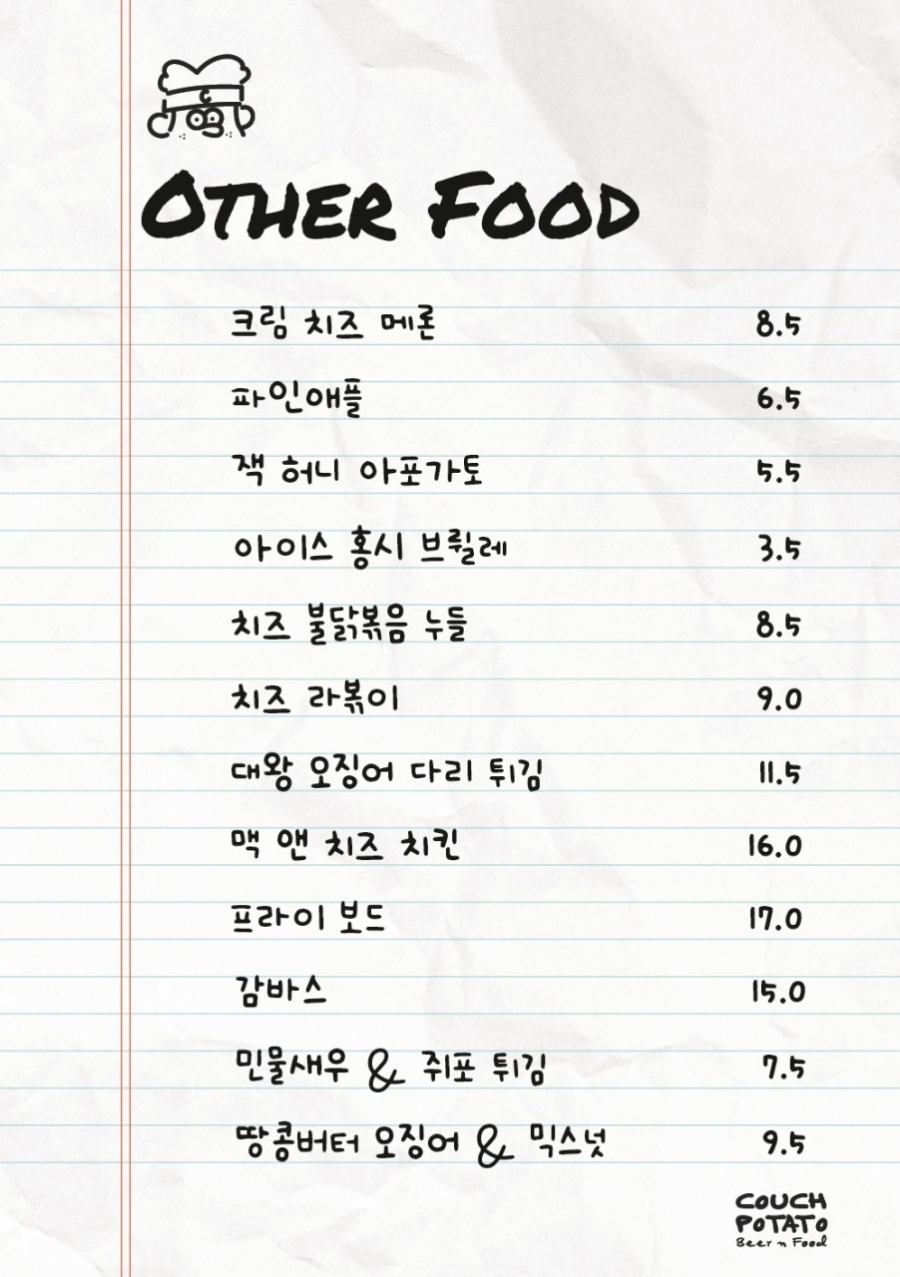 C
OTHER FOOD
크림 치즈 메론 8.5
파인애플 6.5
잭 허니 아포가토 5.5
아이스 홍시 브륄레 3.5
치즈 불닭볶음 누들 8.5
치즈 라볶이 9.0
대왕 오징어 다리 튀김 11.5
맥 앤 치즈 치킨 16.0
프라이 보드 17.0
감바스 15.0
민물새우 & 쥐포 튀김 7.5
땅콩버터 오징어 & 믹스넛 9.5
COUCH
POTATO
Beer n Food